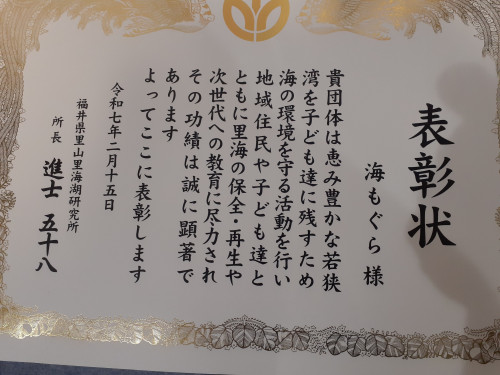 表彰状
海もぐら 様
貴団体は恵み豊かな若狭
湾を子ども達に残すため
海の環境を守る活動を行い
地域住民や子ども達と
ともに里海の保全・再生や
次世代への教育に尽力され
その功績は誠に顕著で
あります
よってここに表彰します
令和七年二月十五日
福井県里山里海湖研究所
所長 進士 五十八